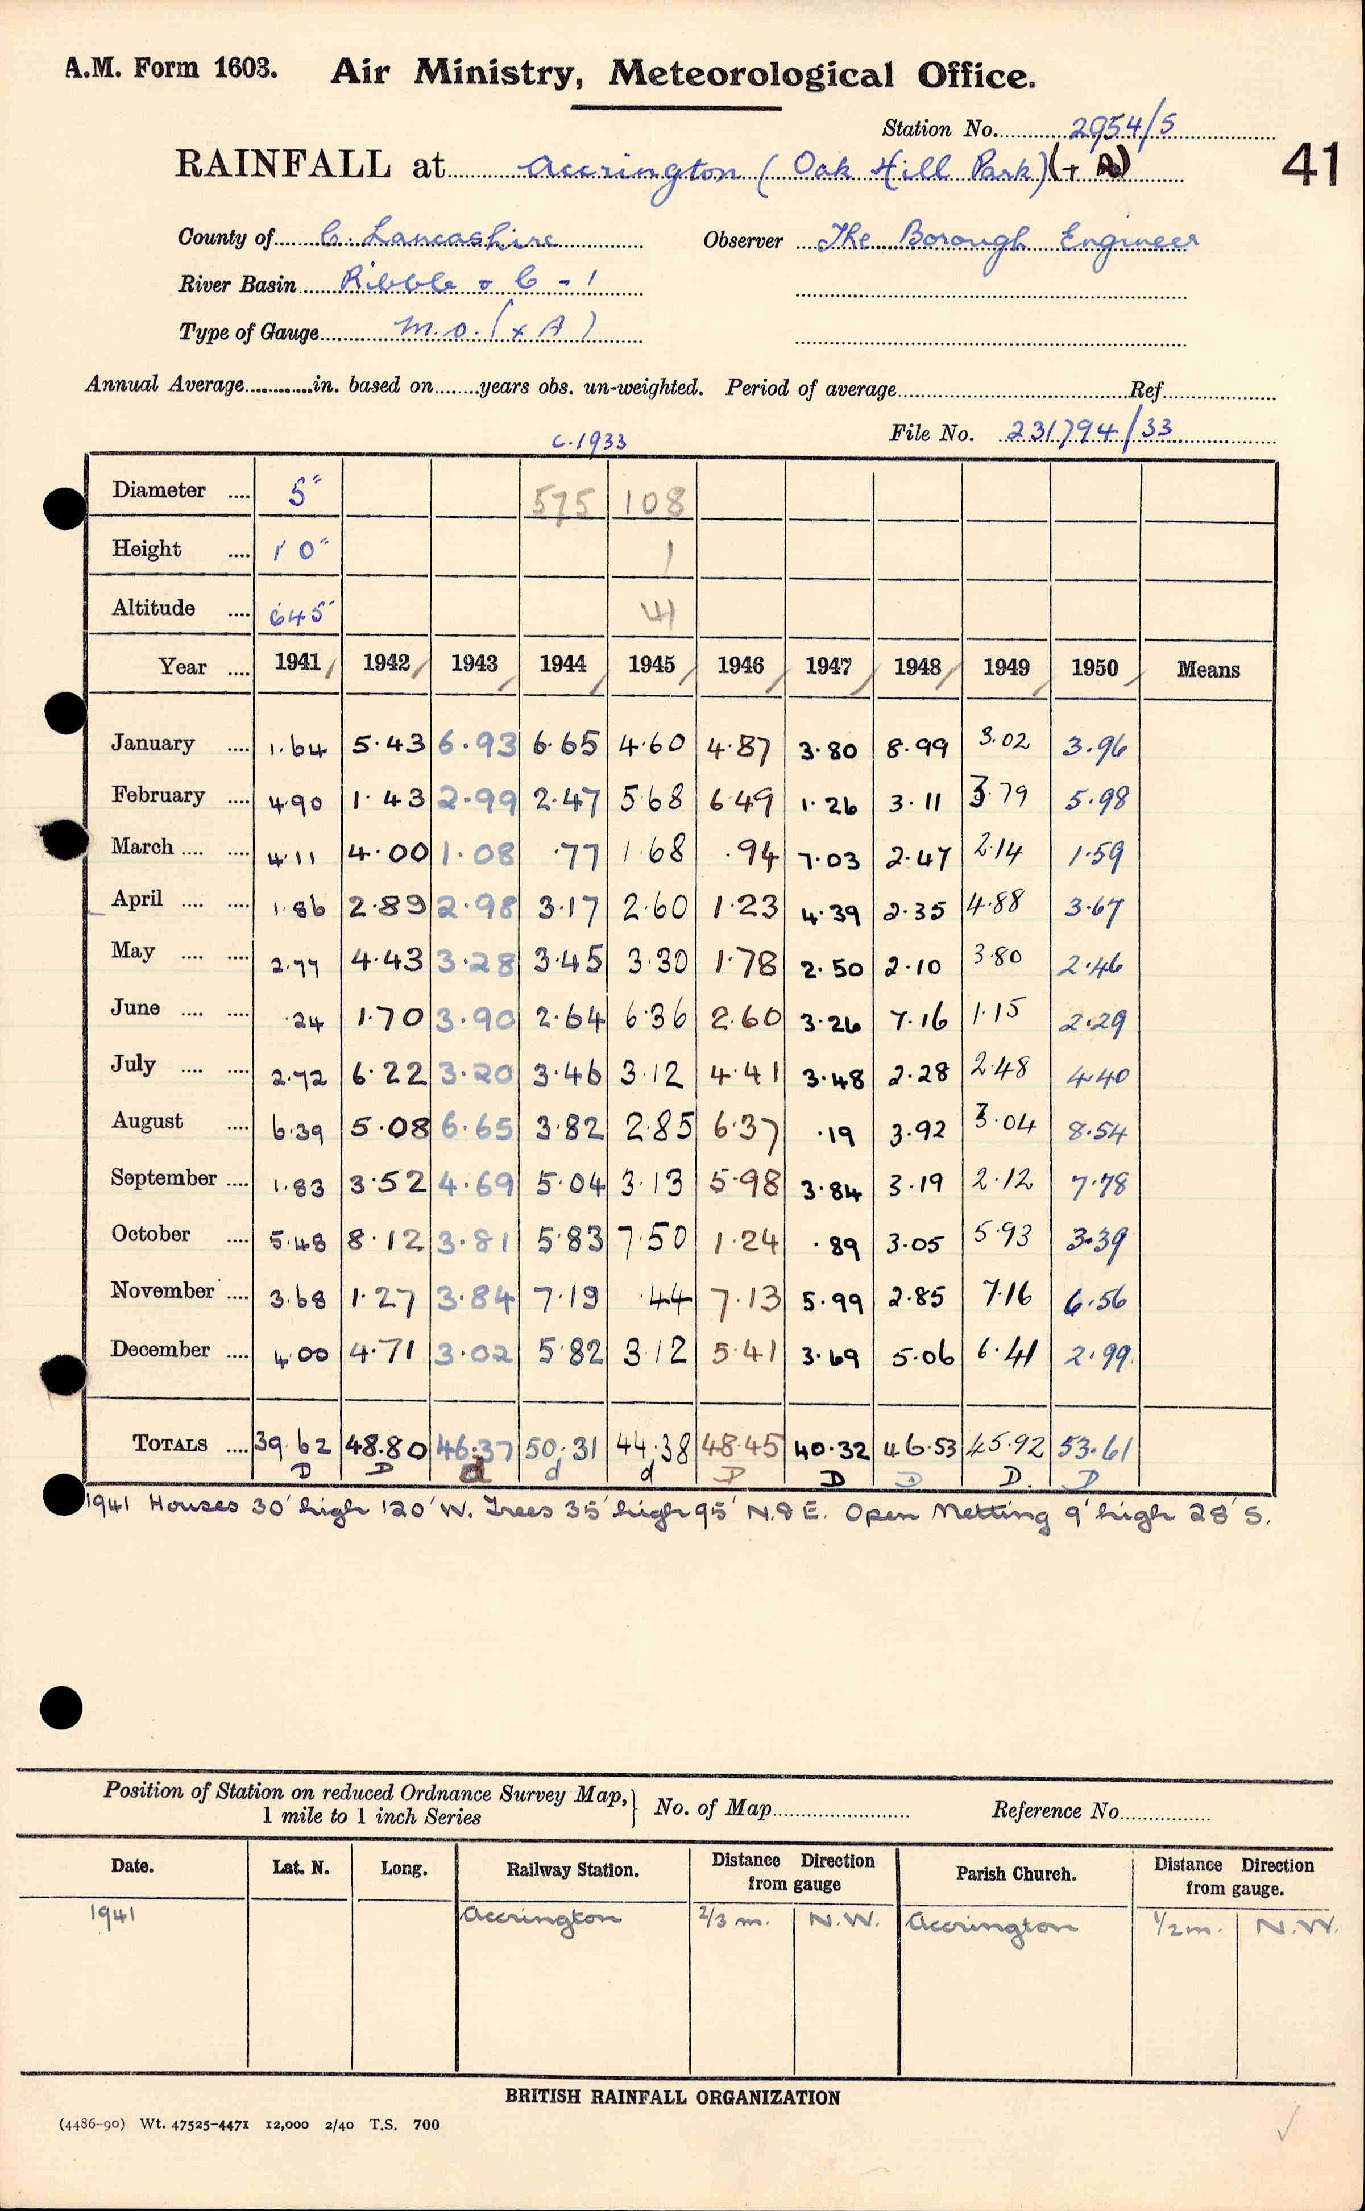 A.M. Form 1603. Air Ministry, Meteorological Office.
Station No. 2954/5
RAINFALL at Accrington (Oak Hill Park) (+ A)
41
County of C. Lancashire Observer The Borough Engineer
River Basin Ribble & C - 1
Type of Gauge M.O. (x A)
Annual Average in. based on years obs. un-weighted. Period of average Ref
c.1933 File No. 231794/33
Diameter 5" 575 108
Height 1' 0" 1
Altitude 645' 41
Year 1941 1942 1943 1944 1945 1946 1947 1948 1949 1950 Means
January 1.64 5.43 6.93 6.65 4.60 4.87 3.80 8.99 3.02 3.96
February 4.90 1.43 2.99 2.47 5.68 6.49 1.26 3.11 3.79 5.98
March 4.11 4.00 1.08 .77 1.68 .94 7.03 2.47 2.14 1.59
April 1.86 2.89 2.98 3.17 2.60 1.23 4.39 2.35 4.88 3.67
May 2.77 4.43 3.28 3.45 3.30 1.78 2.50 2.10 3.80 2.46
June .24 1.70 3.90 2.64 6.36 2.60 3.26 7.16 1.15 2.29
July 2.72 6.22 3.20 3.46 3.12 4.41 3.48 2.28 2.48 4.40
August 6.39 5.08 6.65 3.82 2.85 6.37 .19 3.92 3.04 8.54
September 1.83 3.52 4.69 5.04 3.13 5.98 3.84 3.19 2.12 7.78
October 5.48 8.12 3.81 5.83 7.50 1.24 .89 3.05 5.93 3.39
November 3.68 1.27 3.84 7.19 .44 7.13 5.99 2.85 7.16 6.56
December 4.00 4.71 3.02 5.82 3.12 5.41 3.69 5.06 6.41 2.99
TOTALS 39.62 48.80 46.37 50.31 44.38 48.45 40.32 46.53 45.92 53.61
D D d d d D D D D. D
1941 Houses 30' high 120' W. Trees 35' high 95' N. & E. Open Netting 9' high 28' S.
Position of Station on reduced Ordnance Survey Map, No. of Map Reference No.
1 mile to 1 inch Series
Date. Lat. N. Long. Railway Station. Distance Direction from gauge Parish Church. Distance Direction from gauge.
1941 Accrington 2/3 m. N.W. Accrington 1/2 m. N.W.
BRITISH RAINFALL ORGANIZATION
(4486-90) Wt. 47525-4471 12,000 2/40 T.S. 700